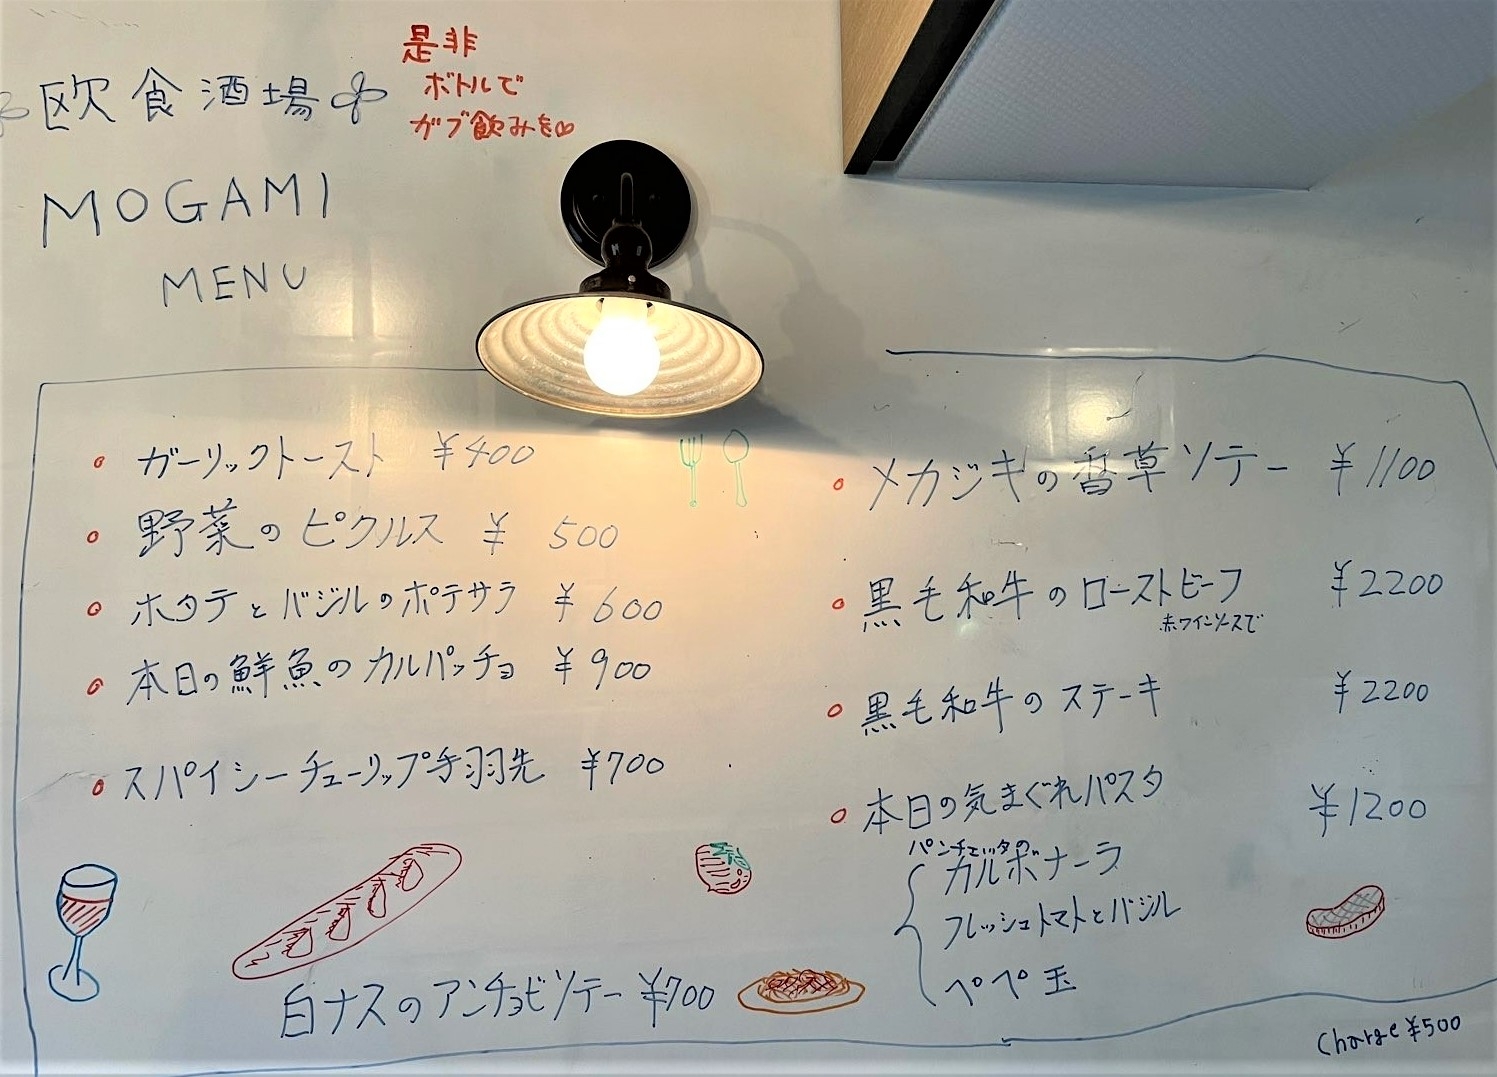 欧食酒場
是非
ボトルで
ガブ飲みを
MOGAMI
MENU
ガーリックトースト ¥400
野菜のピクルス ¥ 500
ホタテとバジルのポテサラ ¥600
本日の鮮魚のカルパッチョ ¥900
スパイシーチューリップ手羽先 ¥700
白ナスのアンチョビソテー ¥700
メカジキの香草ソテー ¥1100
黒毛和牛のローストビーフ ¥2200
赤ワインソースで
黒毛和牛のステーキ ¥2200
本日の気まぐれパスタ ¥1200
パンチェッタの
カルボナーラ
フレッシュトマトとバジル
ペペ玉
Charge ¥500